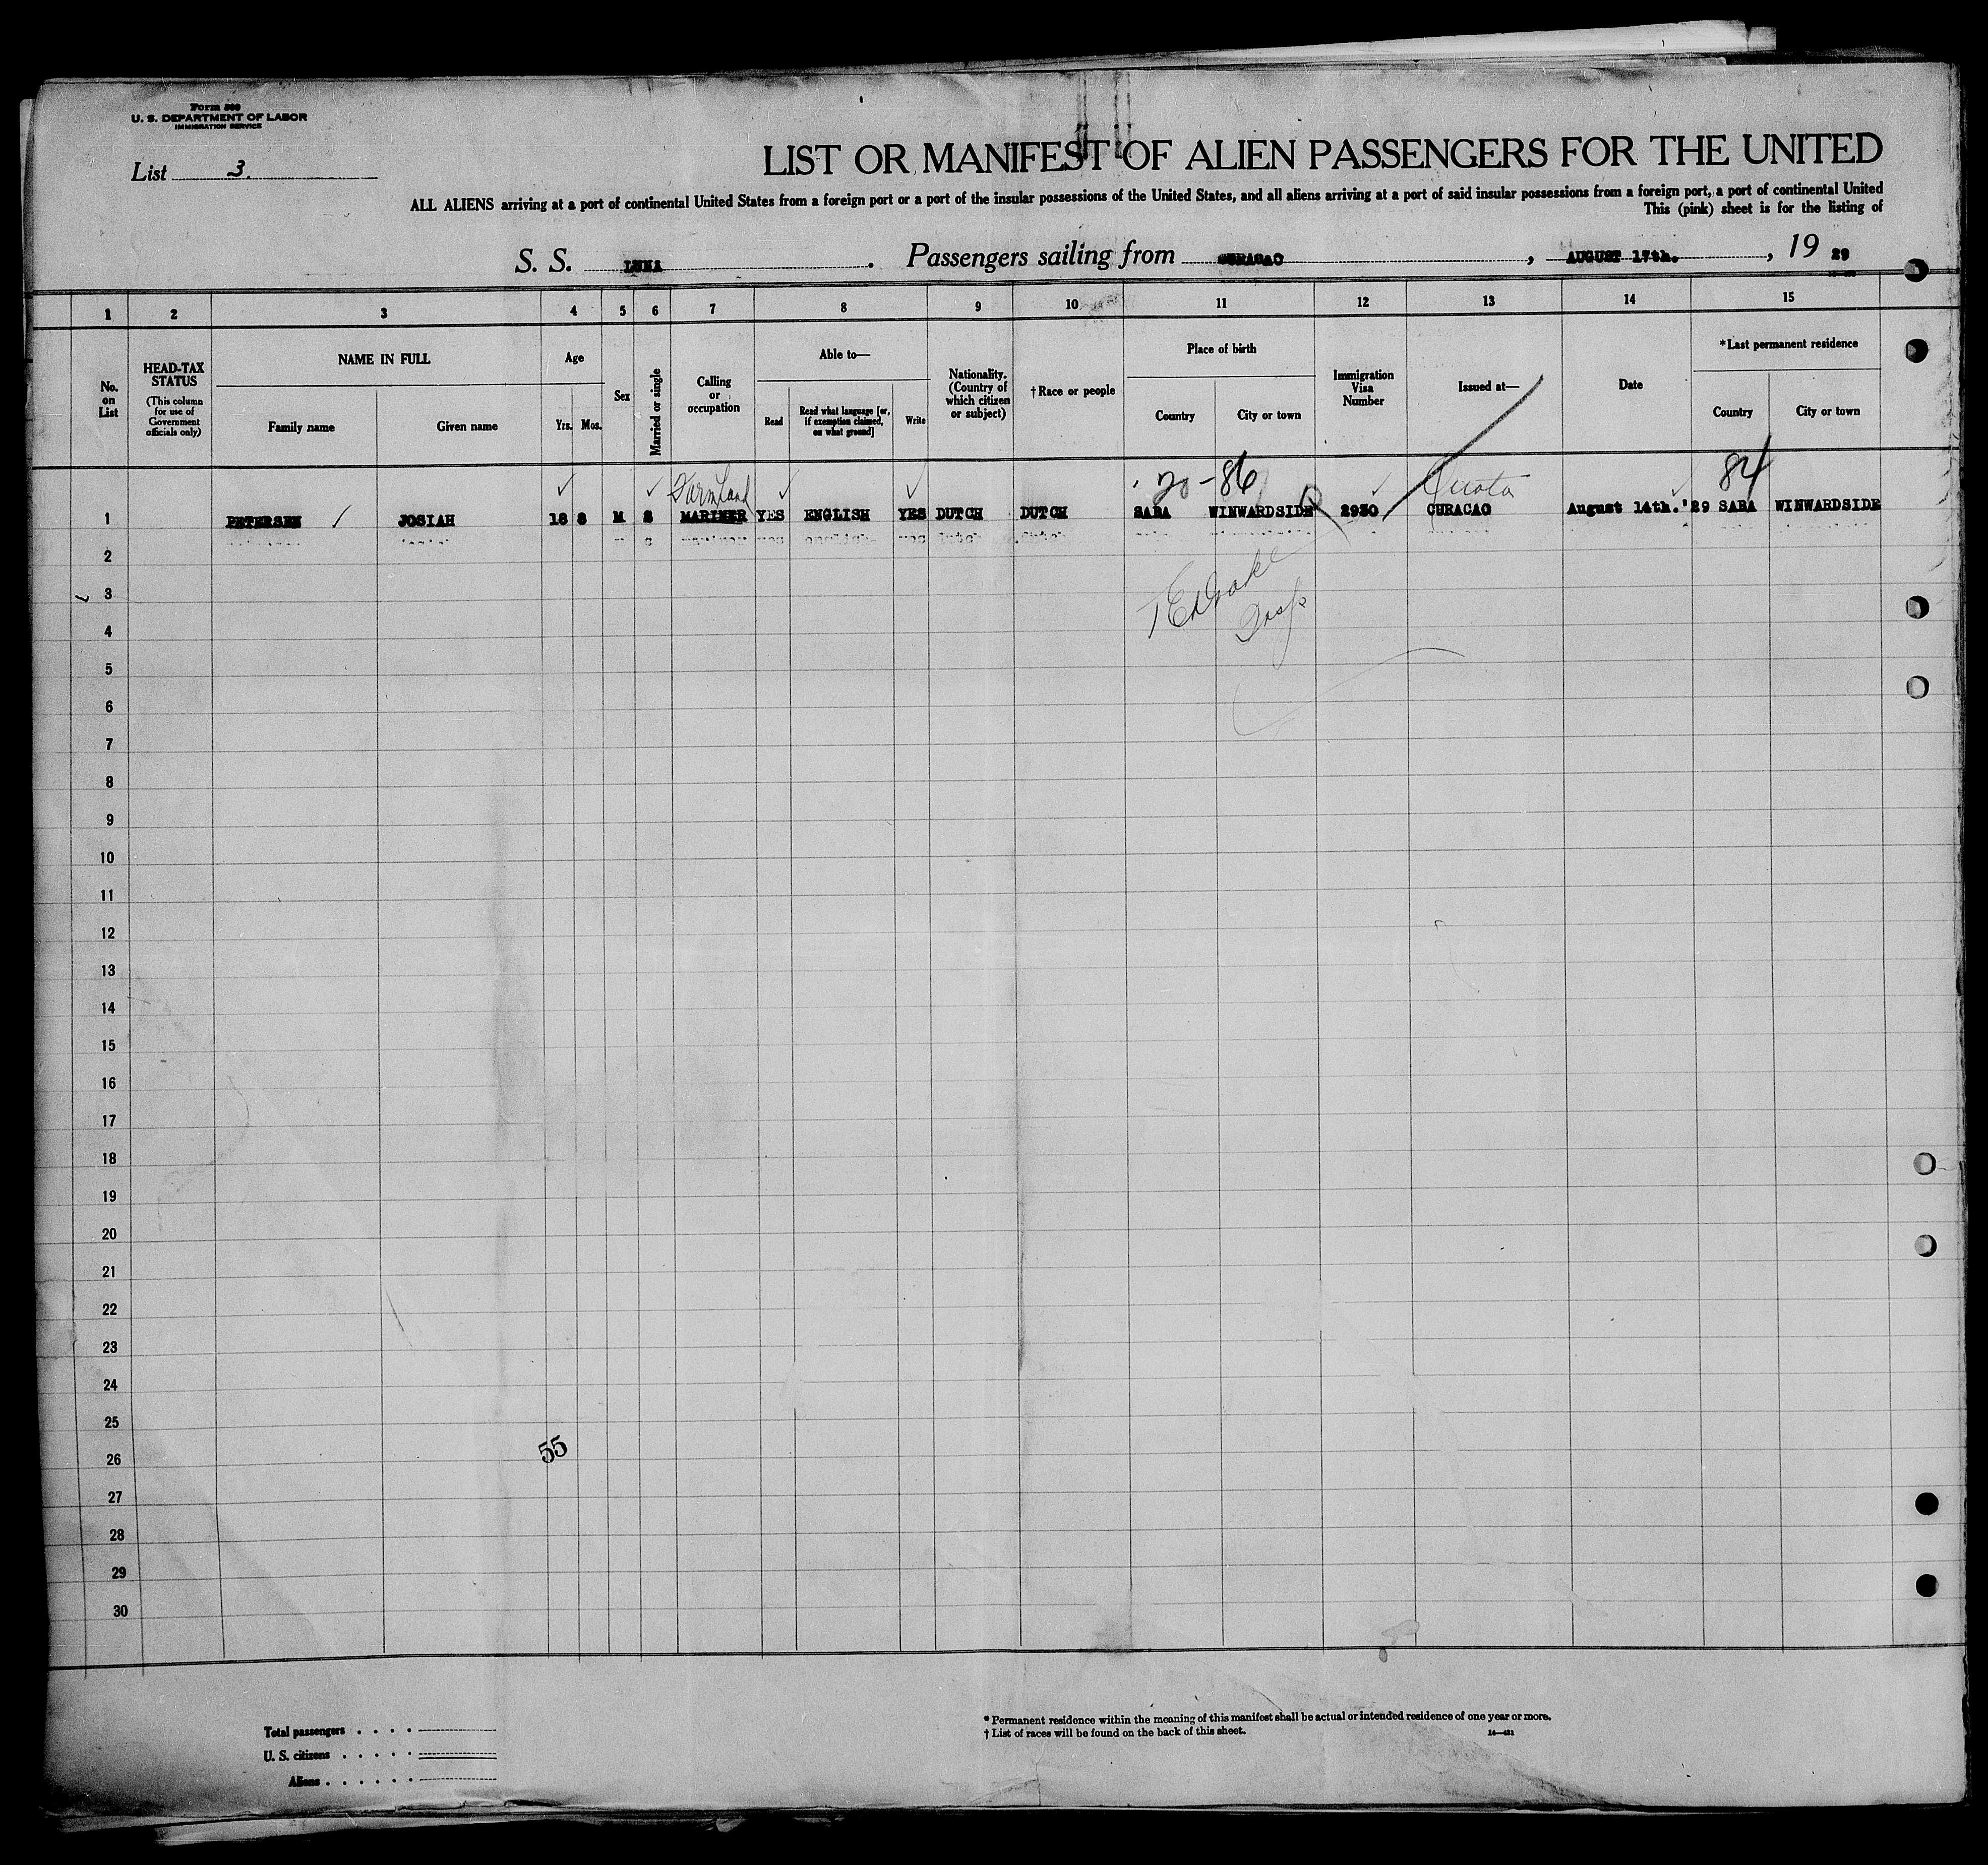 Form 500
U. S. DEPARTMENT OF LABOR
IMMIGRATION SERVICE
List 3.
LIST OR MANIFEST OF ALIEN PASSENGERS FOR THE UNITED
ALL ALIENS arriving at a port of continental United States from a foreign port or a port of the insular possessions of the United States, and all aliens arriving at a port of said insular possessions from a foreign port, a port of continental United
This (pink) sheet is for the listing of
S. S. . Passengers sailing from CURACAO , AUGUST 17th. , 19 29
1 2 3 4 5 6 7 8 9 10 11 12 13 14 15
No. on List
HEAD-TAX STATUS
(This column for use of Government officials only)
NAME IN FULL
Family name Given name
Age
Yrs. Mos.
Sex
Married or single
Calling or occupation
Able to—
Read
Read what language [or, if exemption claimed, on what ground]
Write
Nationality. (Country of which citizen or subject)
† Race or people
Place of birth
Country City or town
Immigration Visa Number
Issued at—
Date
* Last permanent residence
Country City or town
Farm Hand 20-86 Quota 84
1 PETERSEN JOSIAH 18 8 M S MARINER YES ENGLISH YES DUTCH DUTCH SABA WINWARDSIDE 2930 CURACAO August 14th. '29 SABA WINWARDSIDE
2
3
4
Insp
5
6
7
8
9
10
11
12
13
14
15
16
17
18
19
20
21
22
23
24
25
55
26
27
28
29
30
Total passengers . . . .
U. S. citizens . . . . .
Aliens . . . . . .
* Permanent residence within the meaning of this manifest shall be actual or intended residence of one year or more.
† List of races will be found on the back of this sheet.